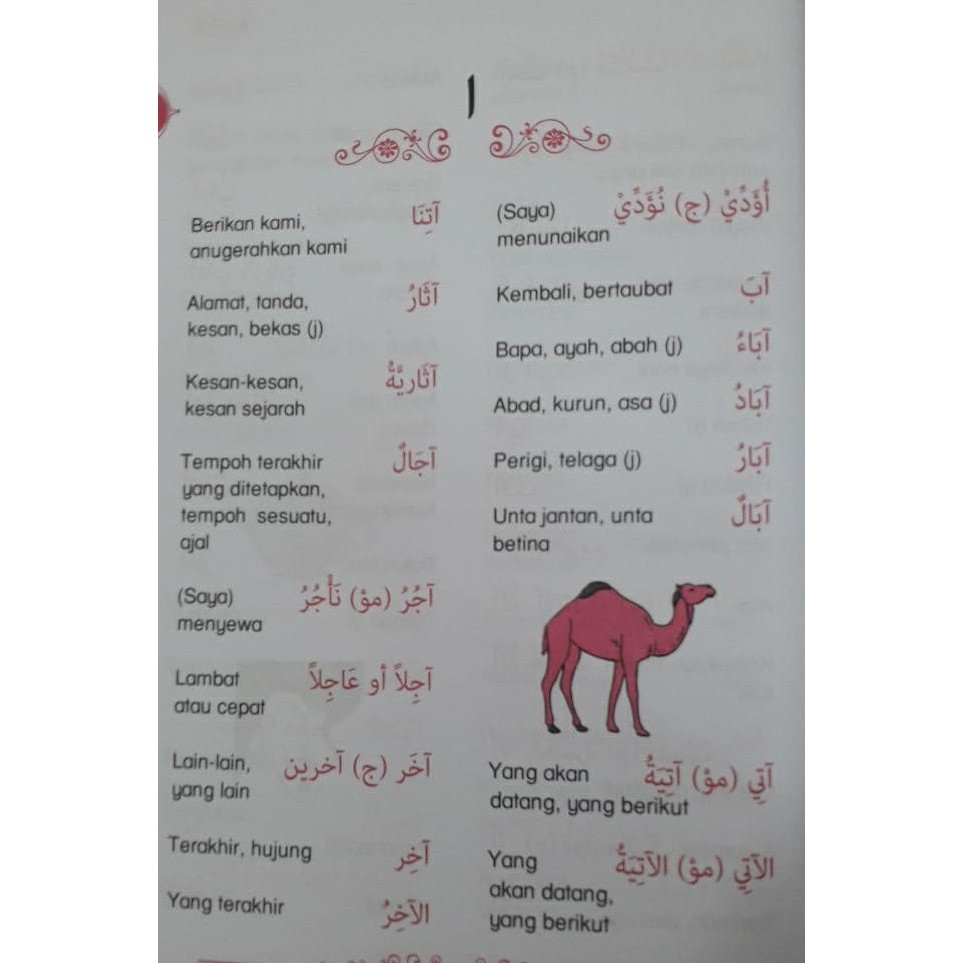 ا
أُؤَدِّيْ (ج) نُؤَدِّيْ (Saya)
menunaikan
آبَ Kembali, bertaubat
آبَاءُ Bapa, ayah, abah (j)
آبَادُ Abad, kurun, asa (j)
آبَارُ Perigi, telaga (j)
آبَالٌ Unta jantan, unta
betina
آتِي (مؤ) آتِيَةٌ Yang akan
datang, yang berikut
الآتِي (مؤ) الآتِيَةُ Yang
akan datang,
yang berikut
آتِنَا Berikan kami,
anugerahkan kami
آثَارُ Alamat, tanda,
kesan, bekas (j)
آثَارِيَّةُ Kesan-kesan,
kesan sejarah
آجَالٌ Tempoh terakhir
yang ditetapkan,
tempoh sesuatu,
ajal
آجُرُ (مؤ) نَأْجُرُ (Saya)
menyewa
آجِلاً أو عَاجِلاً Lambat
atau cepat
آخَر (ج) آخرين Lain-lain,
yang lain
آخِر Terakhir, hujung
الآخِرُ Yang terakhir